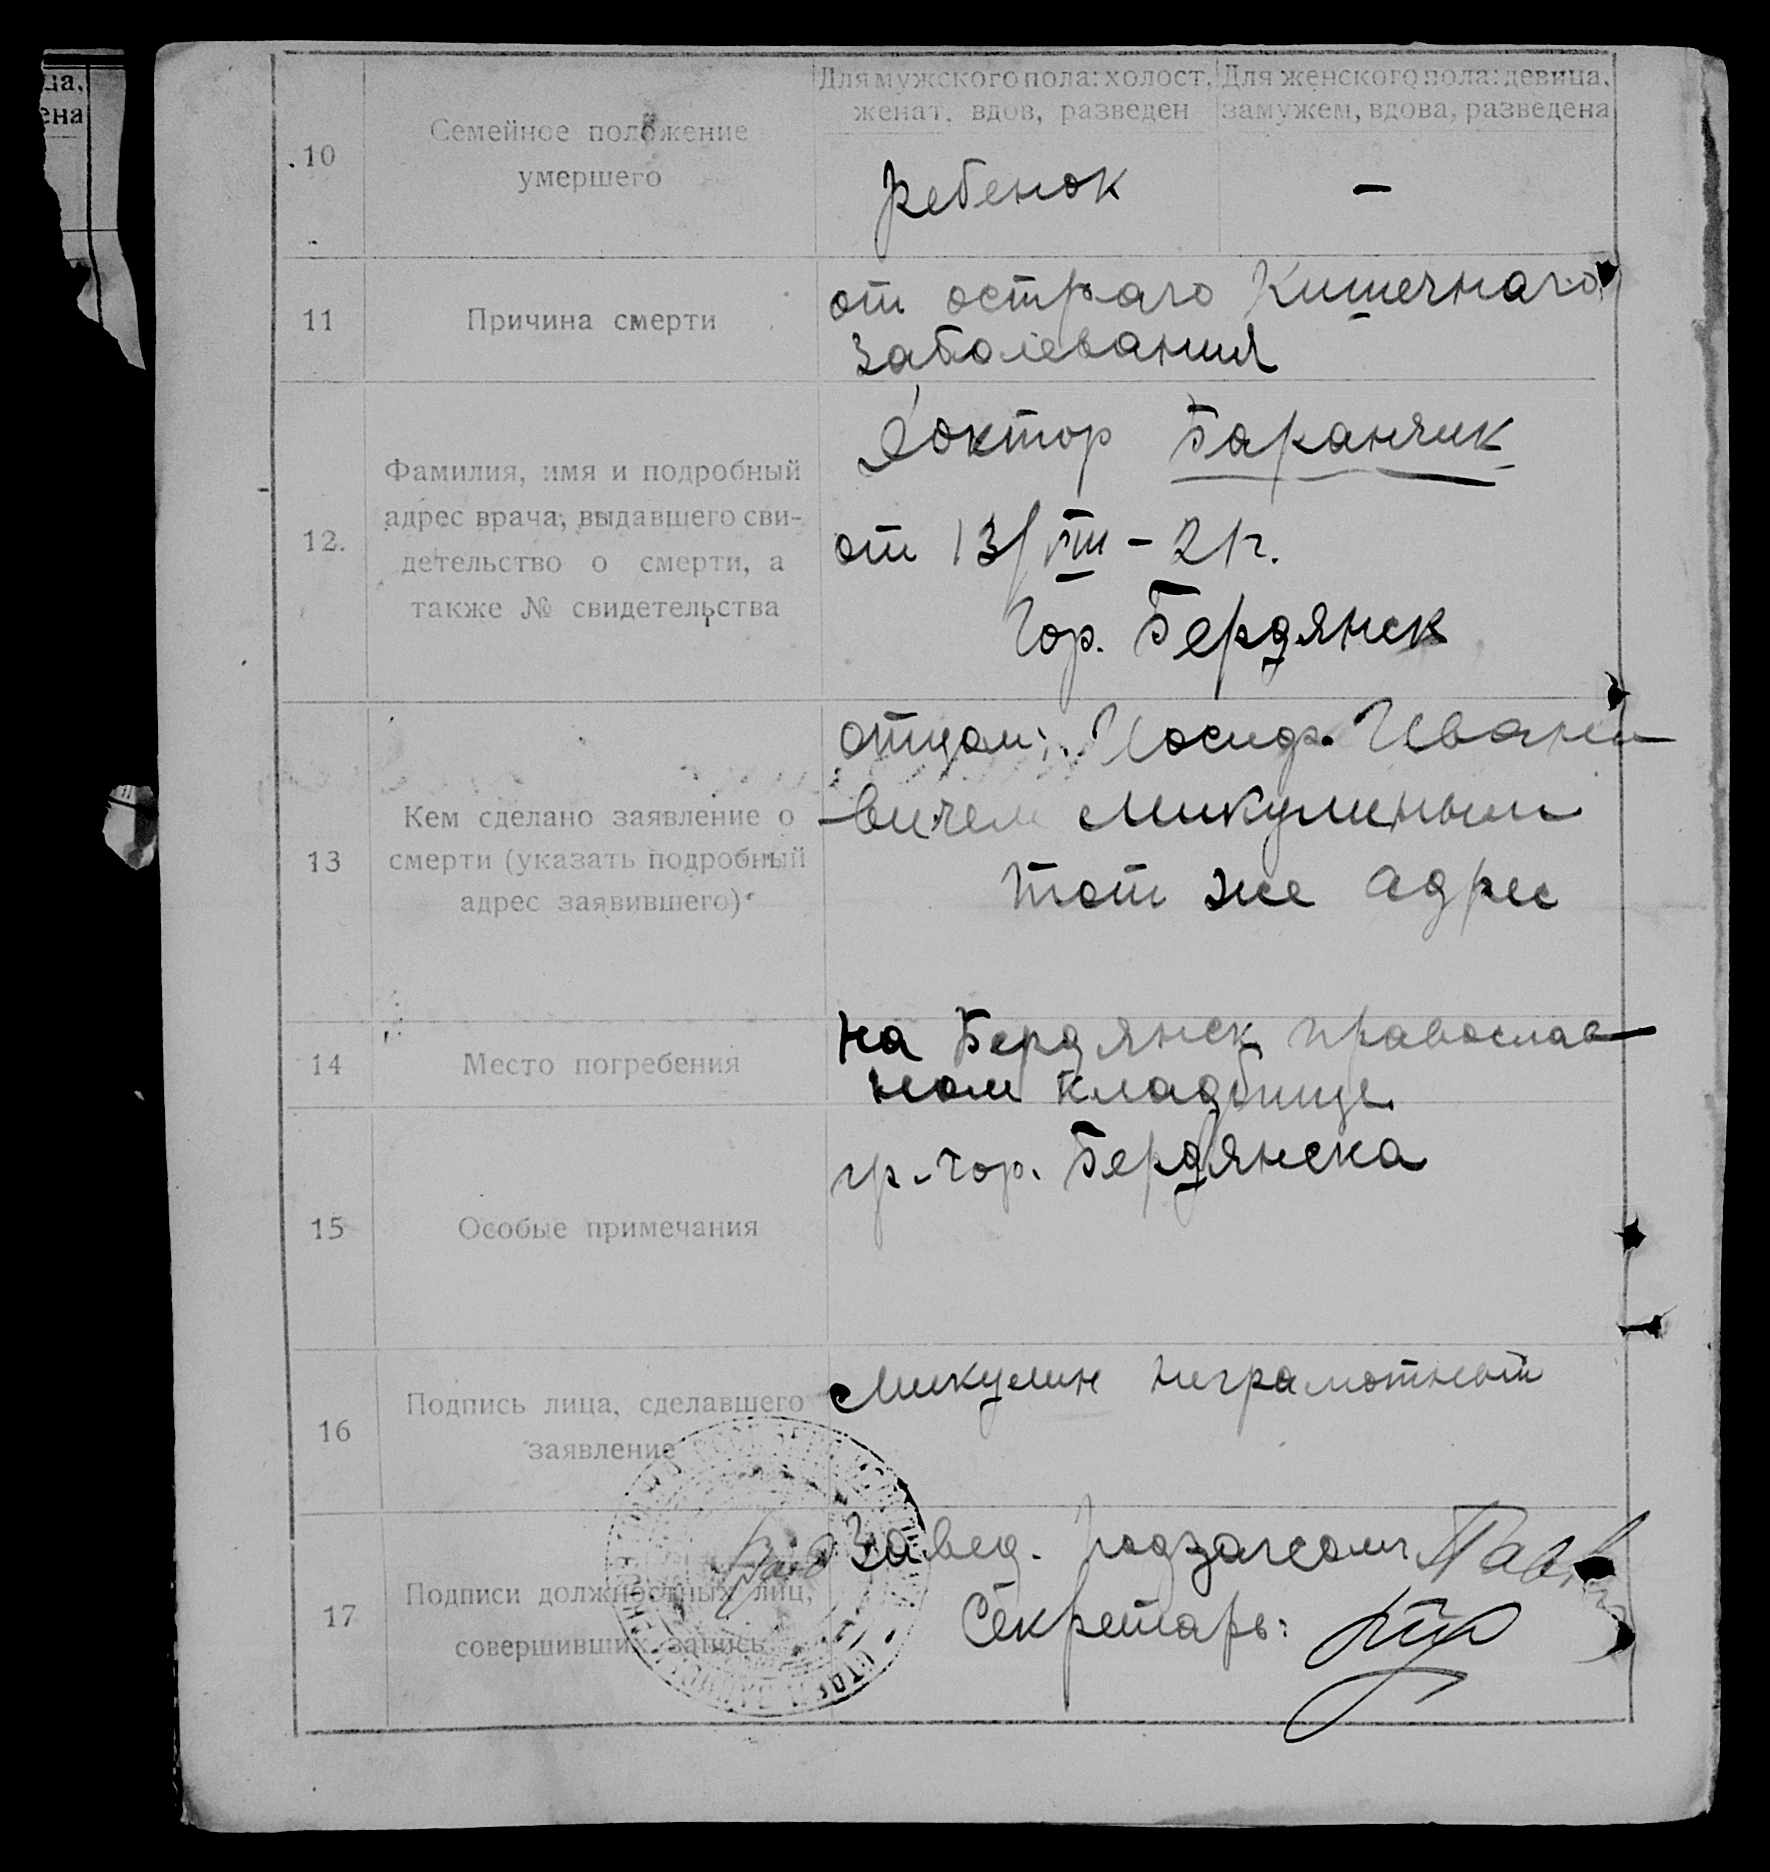 ца,
ена
Для мужского пола: холост, женат, вдов, разведен
Для женского пола: девица, замужем, вдова, разведена
10
Семейное положение
умершего
ребенок
–
11
Причина смерти
от остраго Кишечнаго
заболевания
12.
Фамилия, имя и подробный
адрес врача, выдавшего сви-
детельство о смерти, а
также № свидетельства
Доктор Баранчик
от 13/VIII – 21 г.
Гор. Бердянск
13
Кем сделано заявление о
смерти (указать подробный
адрес заявившего)
отцом: Иосиф. Ивано
вичем Микулиным
тот же адрес
14
Место погребения
на Бердянск православ
ном кладбище
15
Особые примечания
гр. гор. Бердянска
16
Подпись лица, сделавшего
заявление
Микулин неграмотный
17
Подписи должностных лиц,
совершивших запись
Завед. подзагсом
Секретарь: